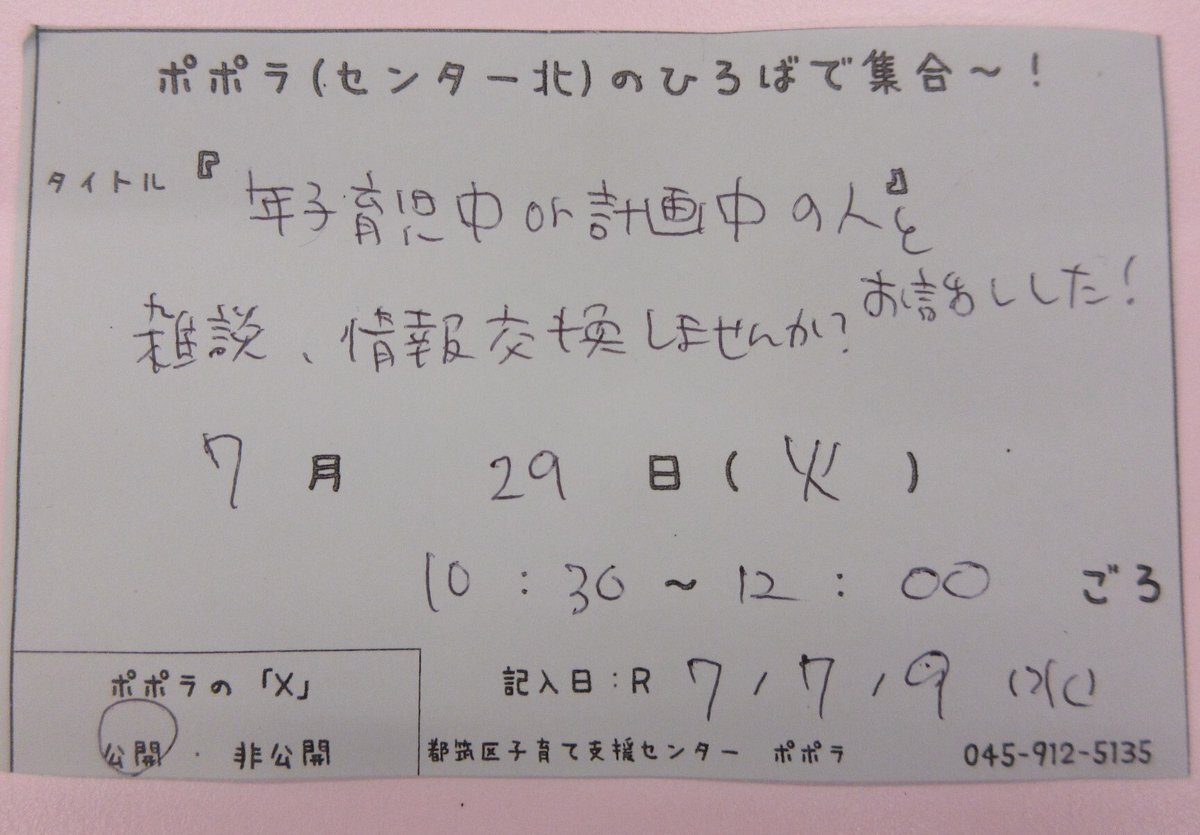 ポポラ(センター北)のひろばで集合～！
タイトル『年子育児中or計画中の人』と
お話しした！
雑談、情報交換しませんか?
7月 29日(火)
10:30～12:00ごろ
ポポラの「X」
公開・非公開
記入日:R 7/7/9 (水)
都筑区子育て支援センター ポポラ 045-912-5135